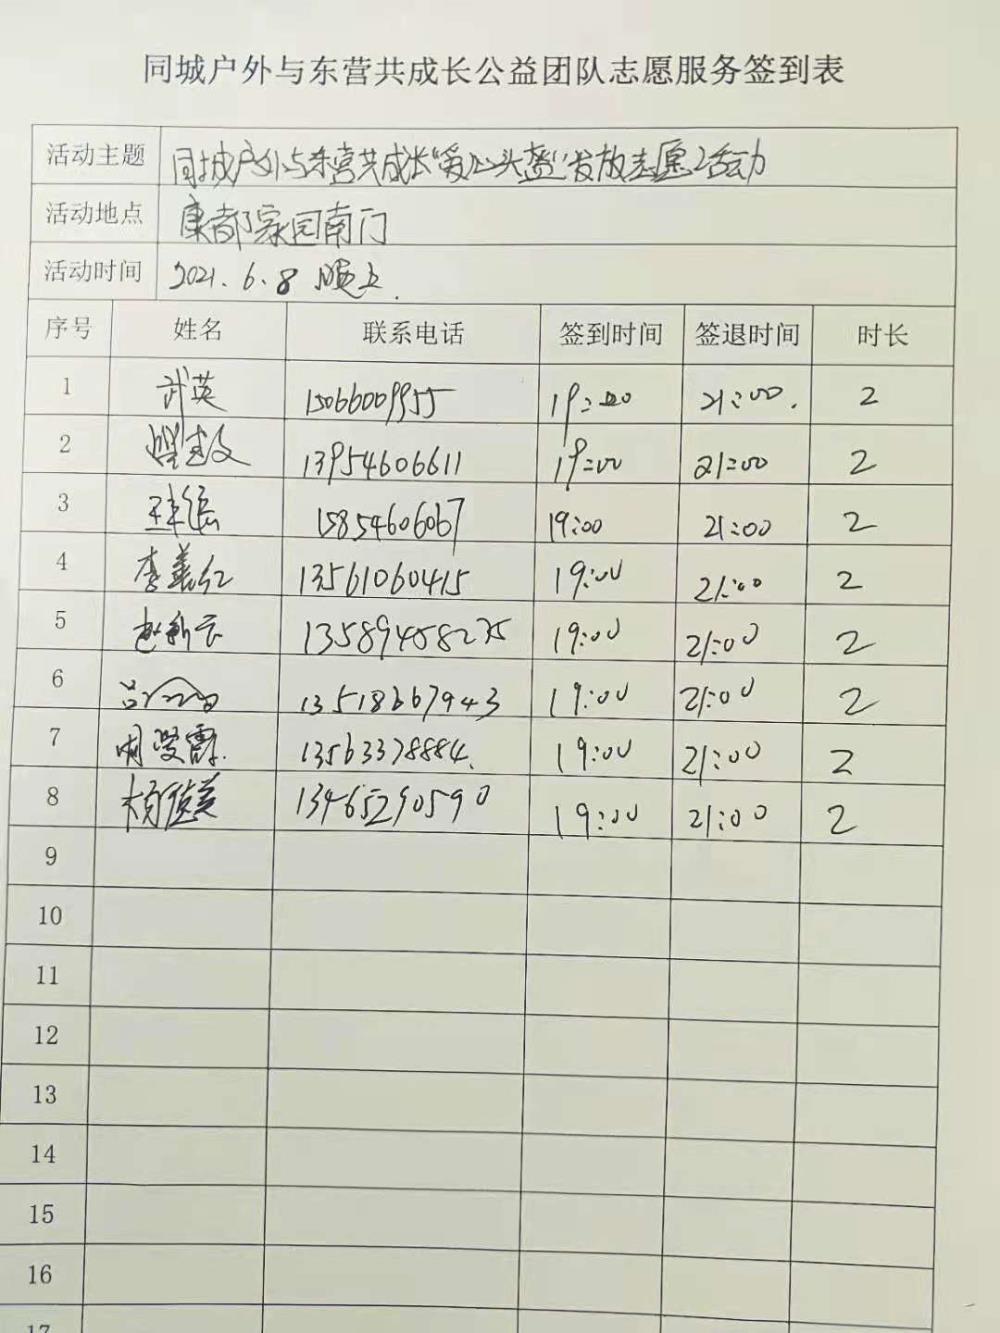 同城户外与东营共成长公益团队志愿服务签到表
活动主题 同城户外与东营共成长“爱心头盔”发放志愿活动
活动地点 康都家园南门
活动时间 2021.6.8 晚上.
序号 姓名 联系电话 签到时间 签退时间 时长
1 武英 15066009955 19:00 21:00. 2
2 13954606611 19:00 21:00 2
3 15854606067 19:00 21:00 2
4 李美红 13561060415 19:00 21:00 2
5 赵新云 13589458235 19:00 21:00 2
6 13518667943 19:00 21:00 2
7 13563378884. 19:00 21:00 2
8 杨俊美 13465290590 19:00 21:00 2
9
10
11
12
13
14
15
16
17